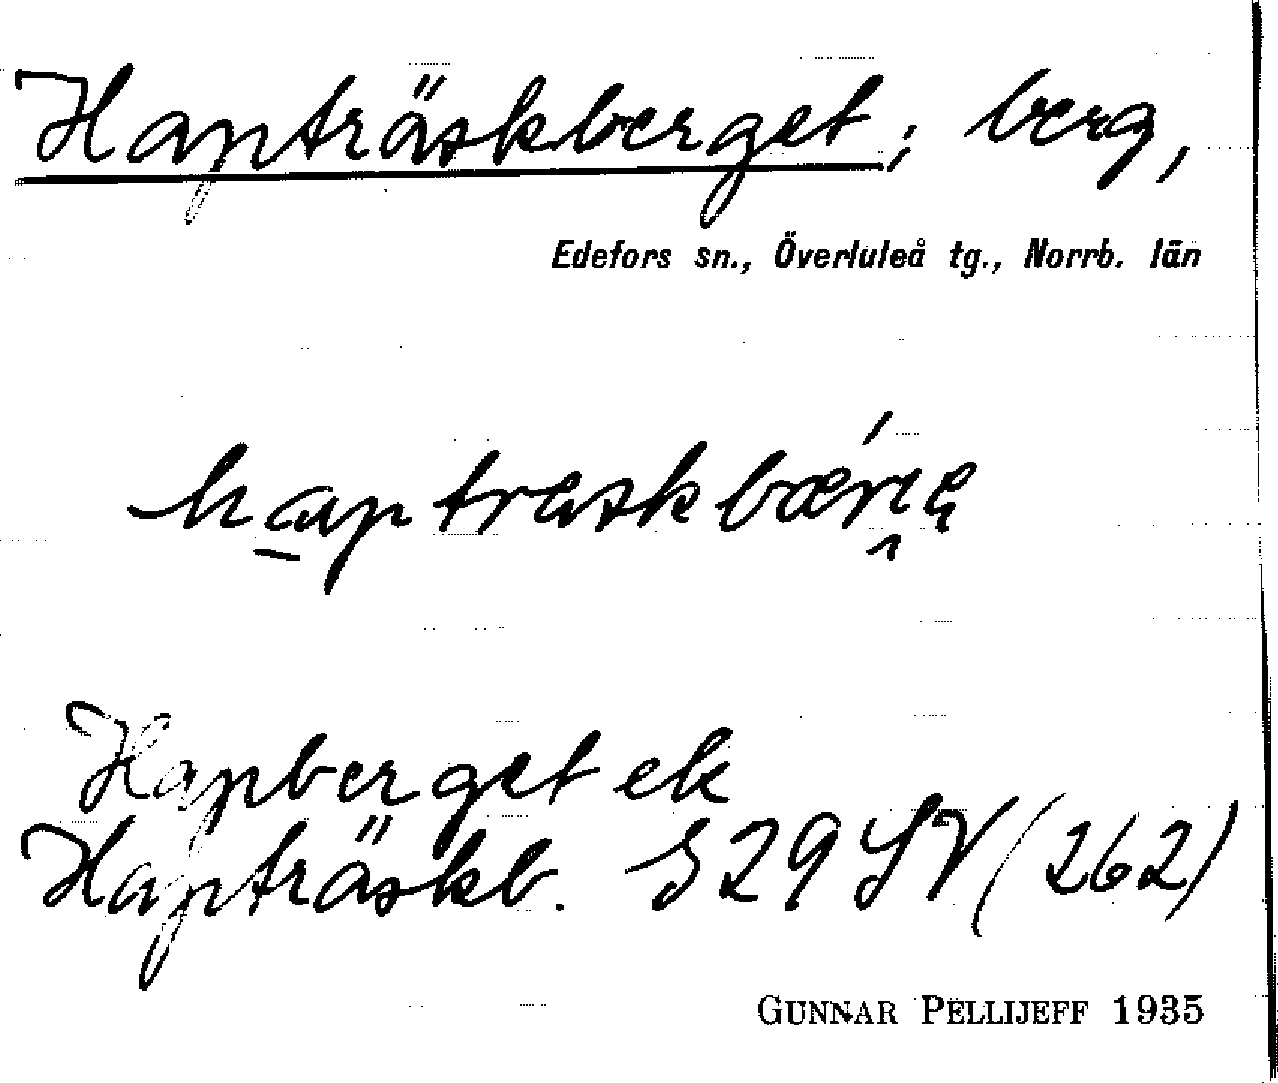 Hapträskberget; berg,
Edefors sn., Överluleå tg., Norrb. län
Hapberget ek
Hapträskb. S29 SV (262)
GUNNAR PELLIJEFF 1935